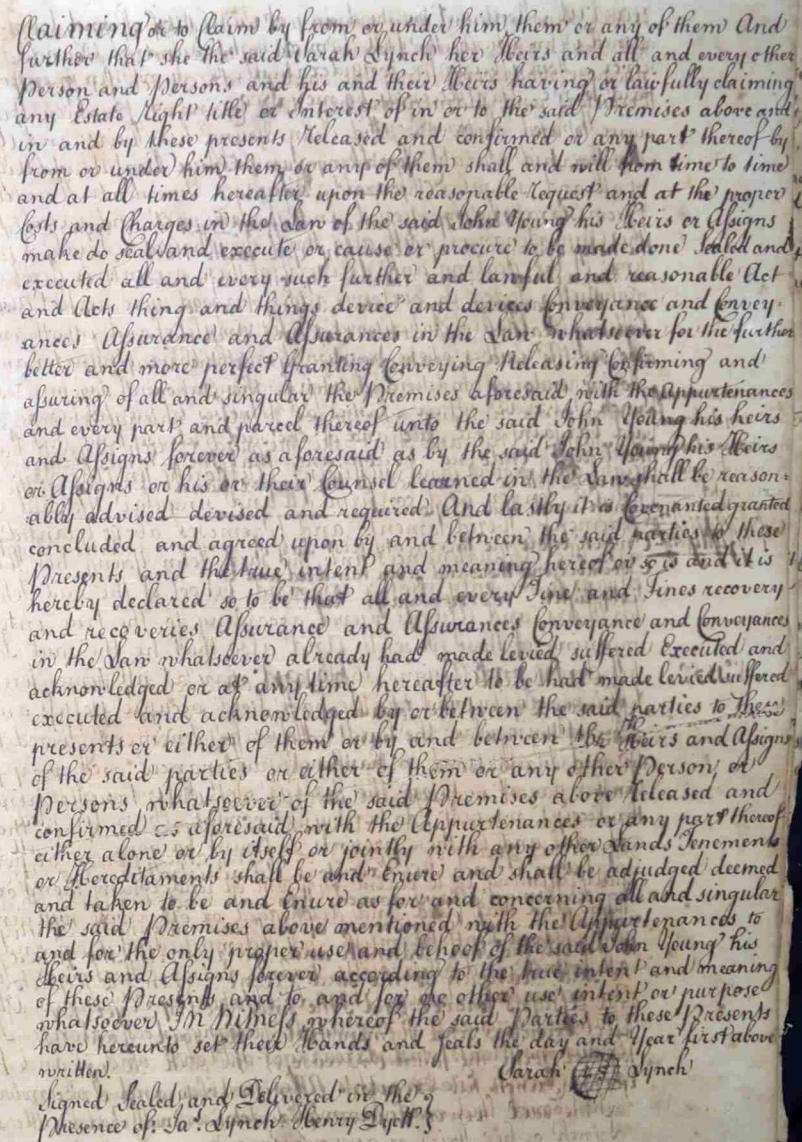 Claiming or to Claim by from or under him them or any of them And
further that she the said Sarah Lynch her Heirs and all and every other
Person and Persons and his and their Heirs having or lawfully claiming
any Estate Right title or interest of in or to the said Premises above and
in and by these presents Released and confirmed or any part thereof by
from or under him them or any of them shall and will from time to time
and at all times hereafter upon the reasonable Request and at the proper
Costs and Charges in the Law of the said John Young his Heirs or Assigns
make do seal and execute or cause or procure to be made done Sealed and
executed all and every such further and lawful and reasonable Act
and Acts thing and things device and devices Conveyance and Convey-
ances Assurance and Assurances in the Law whatsoever for the further
better and more perfect Granting Conveying Releasing Confirming and
assuring of all and singular the Premises aforesaid with the Appurtenances
and every part and parcel thereof unto the said John Young his heirs
and Assigns forever as aforesaid as by the said John Young his Heirs
or Assigns or his or their Counsel learned in the Law shall be reason=
ably advised devised and required And lastly it is Covenanted granted
concluded and agreed upon by and between the said parties to these
Presents and the true intent and meaning hereof or so is and it is
hereby declared so to be that all and every Fine and Fines recovery
and recoveries Assurance and Assurances Conveyance and Conveyances
in the Law whatsoever already had made levied suffered Executed and
acknowledged or at any time hereafter to be had made levied suffered
executed and acknowledged by or between the said parties to These
presents or either of them or by and between the Heirs and Assigns
of the said parties or either of them or any other Person or
Persons whatsoever of the said Premises above Released and
confirmed as aforesaid with the Appurtenances or any part thereof
either alone or by itself or jointly with any other Lands Tenements
or Hereditaments shall be and Enure and shall be adjudged deemed
and taken to be and Enure as for and concerning all and singular
the said Premises above mentioned with the Appurtenances to
and for the only proper use and behoof of the said John Young his
Heirs and Assigns forever according to the true intent and meaning
of these Presents and to and for no other use intent or purpose
whatsoever In Witness whereof the said Parties to these Presents
have hereunto set their Hands and Seals the day and Year first above
written. Sarah Lynch
Signed Sealed and Delivered in the
Presence of: Jas. Lynch. Henry Dyett.